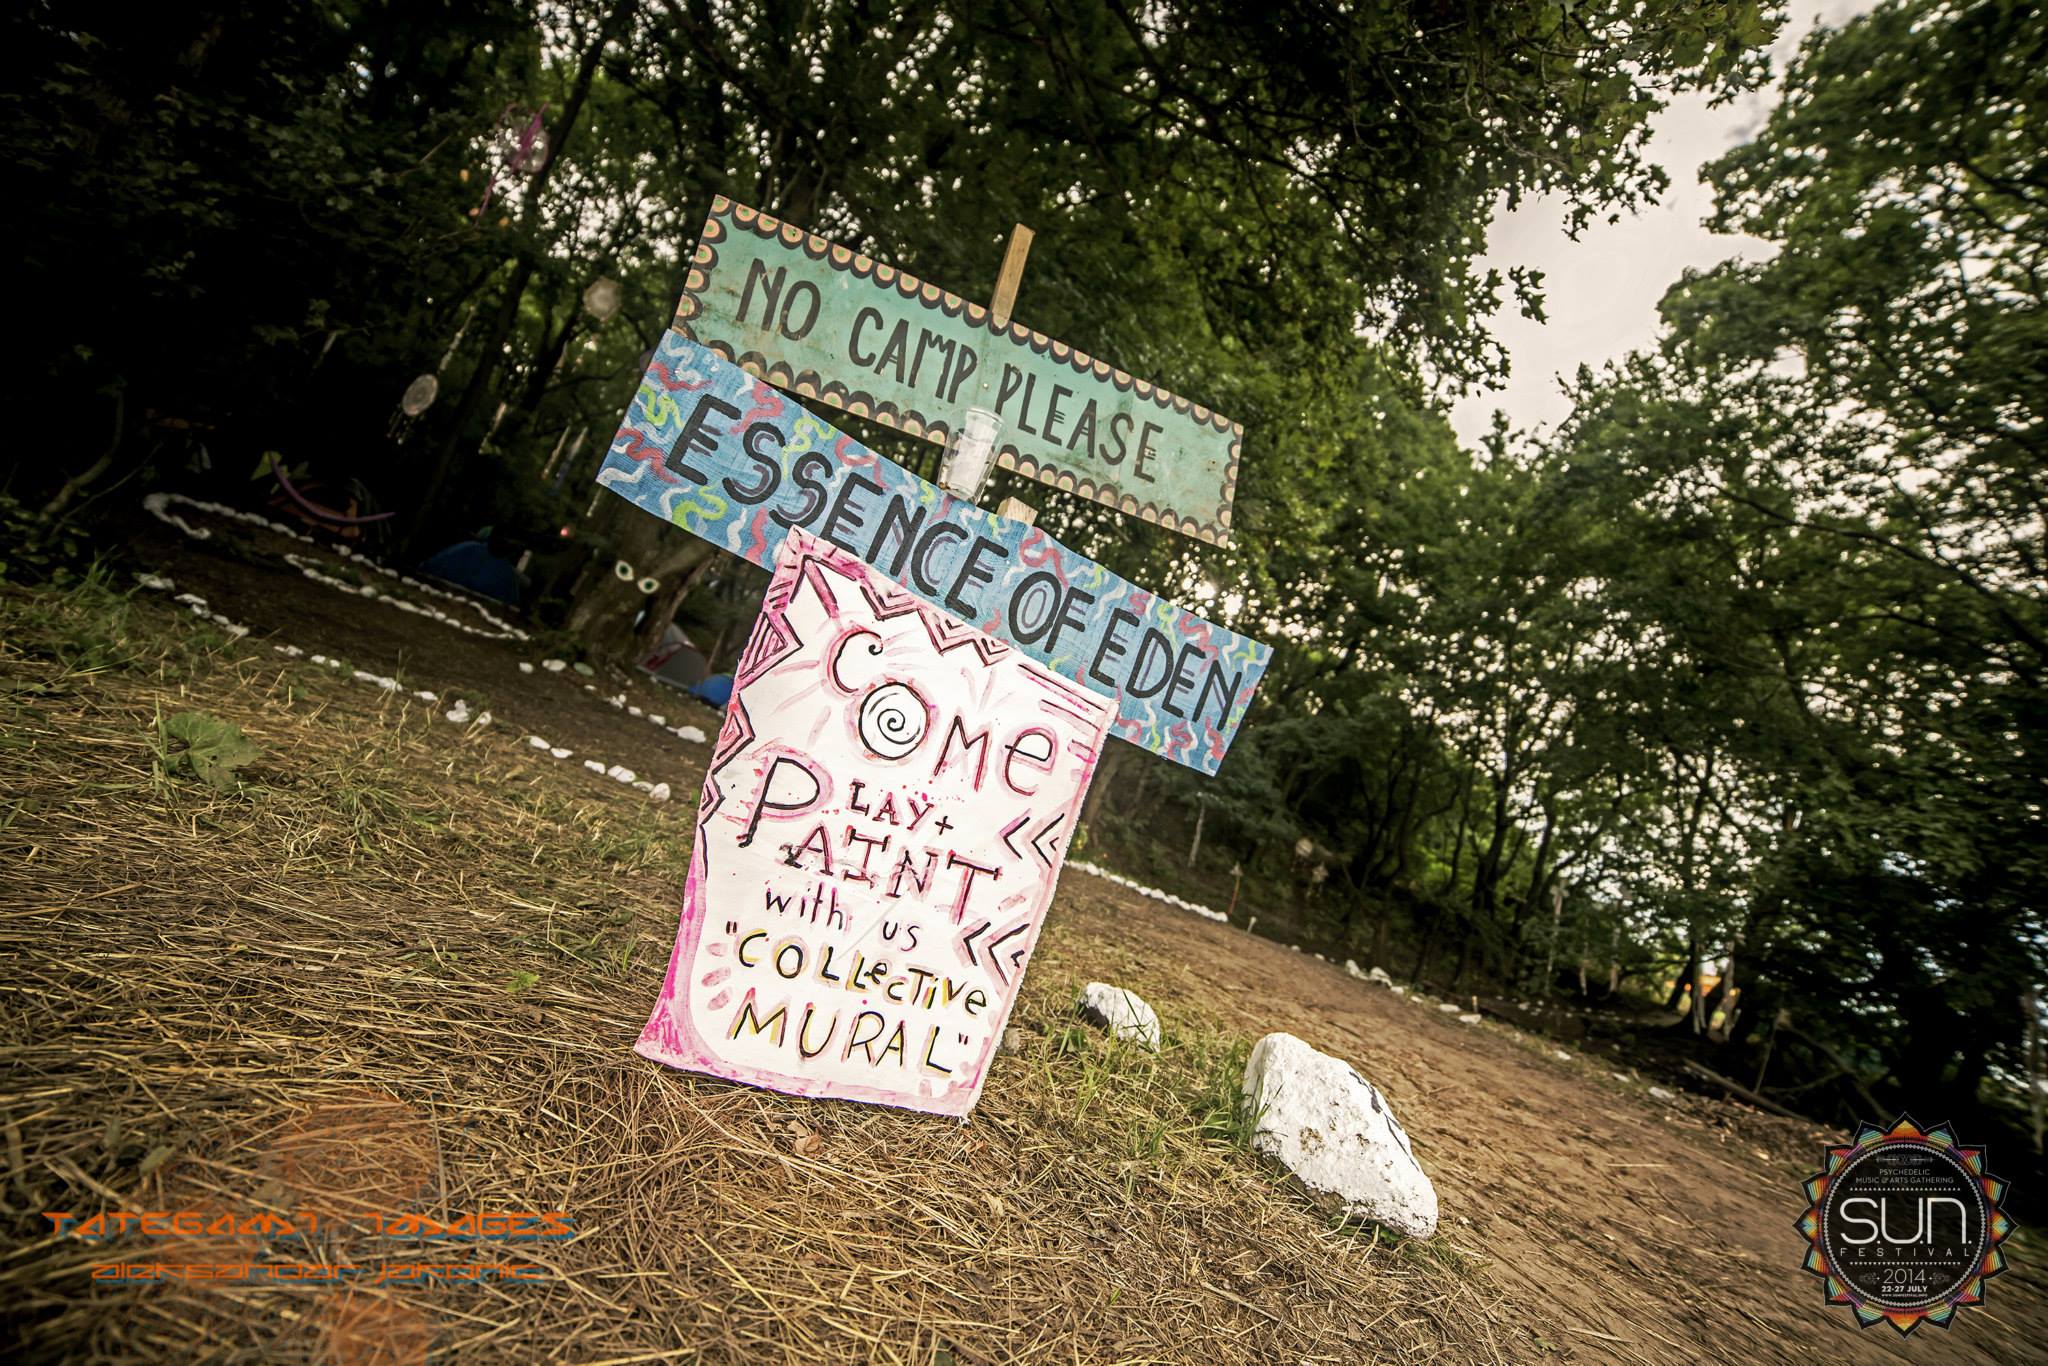 NO CAMP PLEASE
ESSENCE OF EDEN
COMe
PLAY +
PAINT
with us
"COLLecTive
MURAL"
TATEGAMI IMAGES
aleksandar jakonic
PSYCHEDELIC
MUSIC & ARTS GATHERING
S.U.N.
FESTIVAL
2014
22-27 JULY
WWW.SUNFESTIVAL.INFO